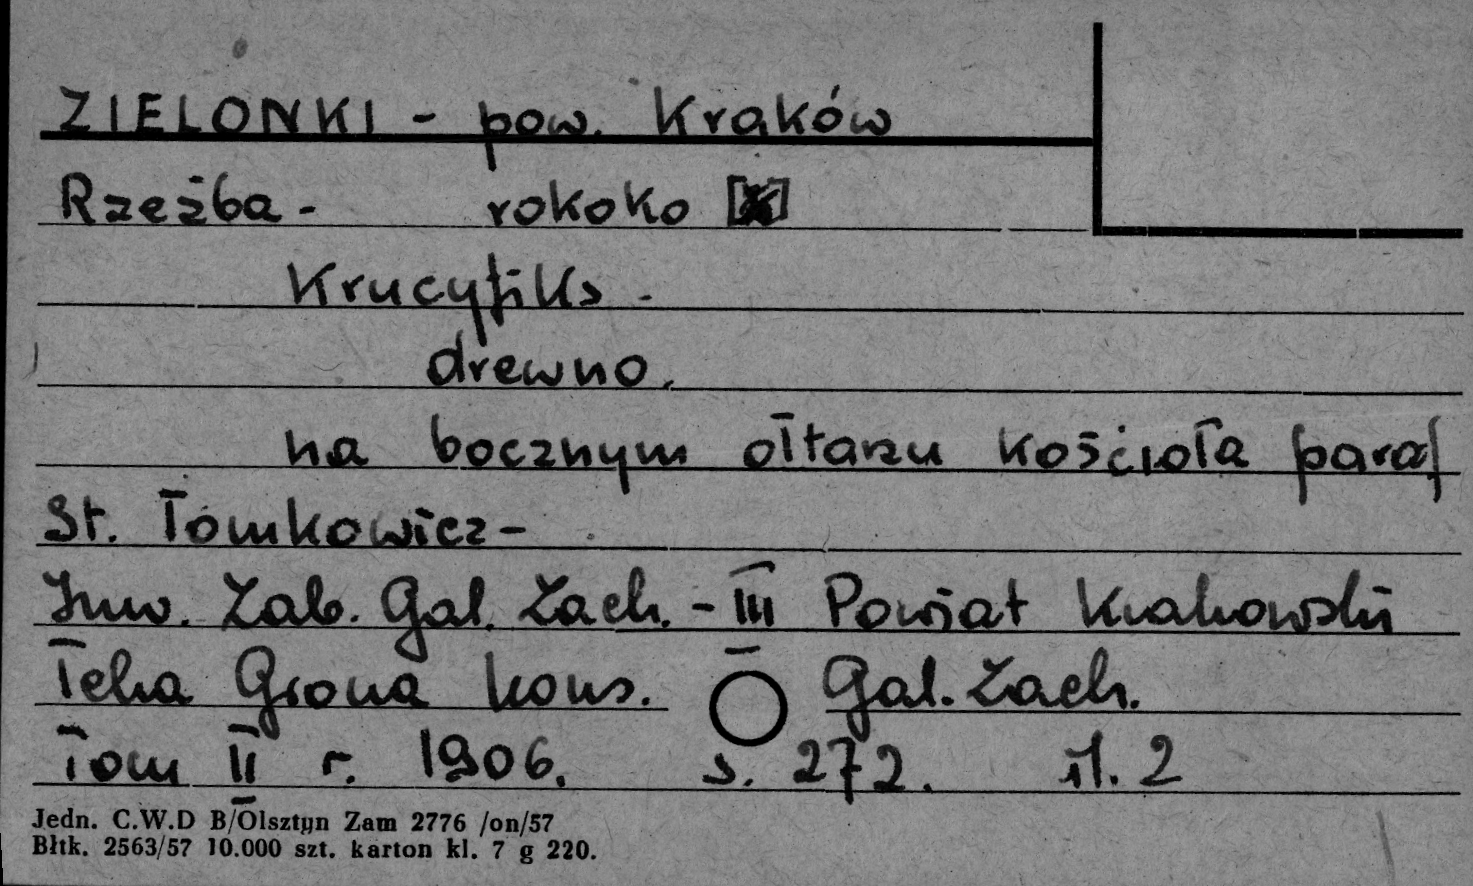 ZIELONKI - pow. Kraków
Rzeźba - rokoko
Krucyfiks -
drewno.
na bocznym ołtarzu kościoła paraf
St. Tomkowicz -
Inw. Zab. Gal. Zach. - III Powiat Krakowski
Teka Grona kons. Gal. Zach.
Tom II r. 1906. s. 272. il. 2
Jedn. C.W.D B/Olsztyn Zam 2776 /on/57
Błtk. 2563/57 10.000 szt. karton kl. 7 g 220.